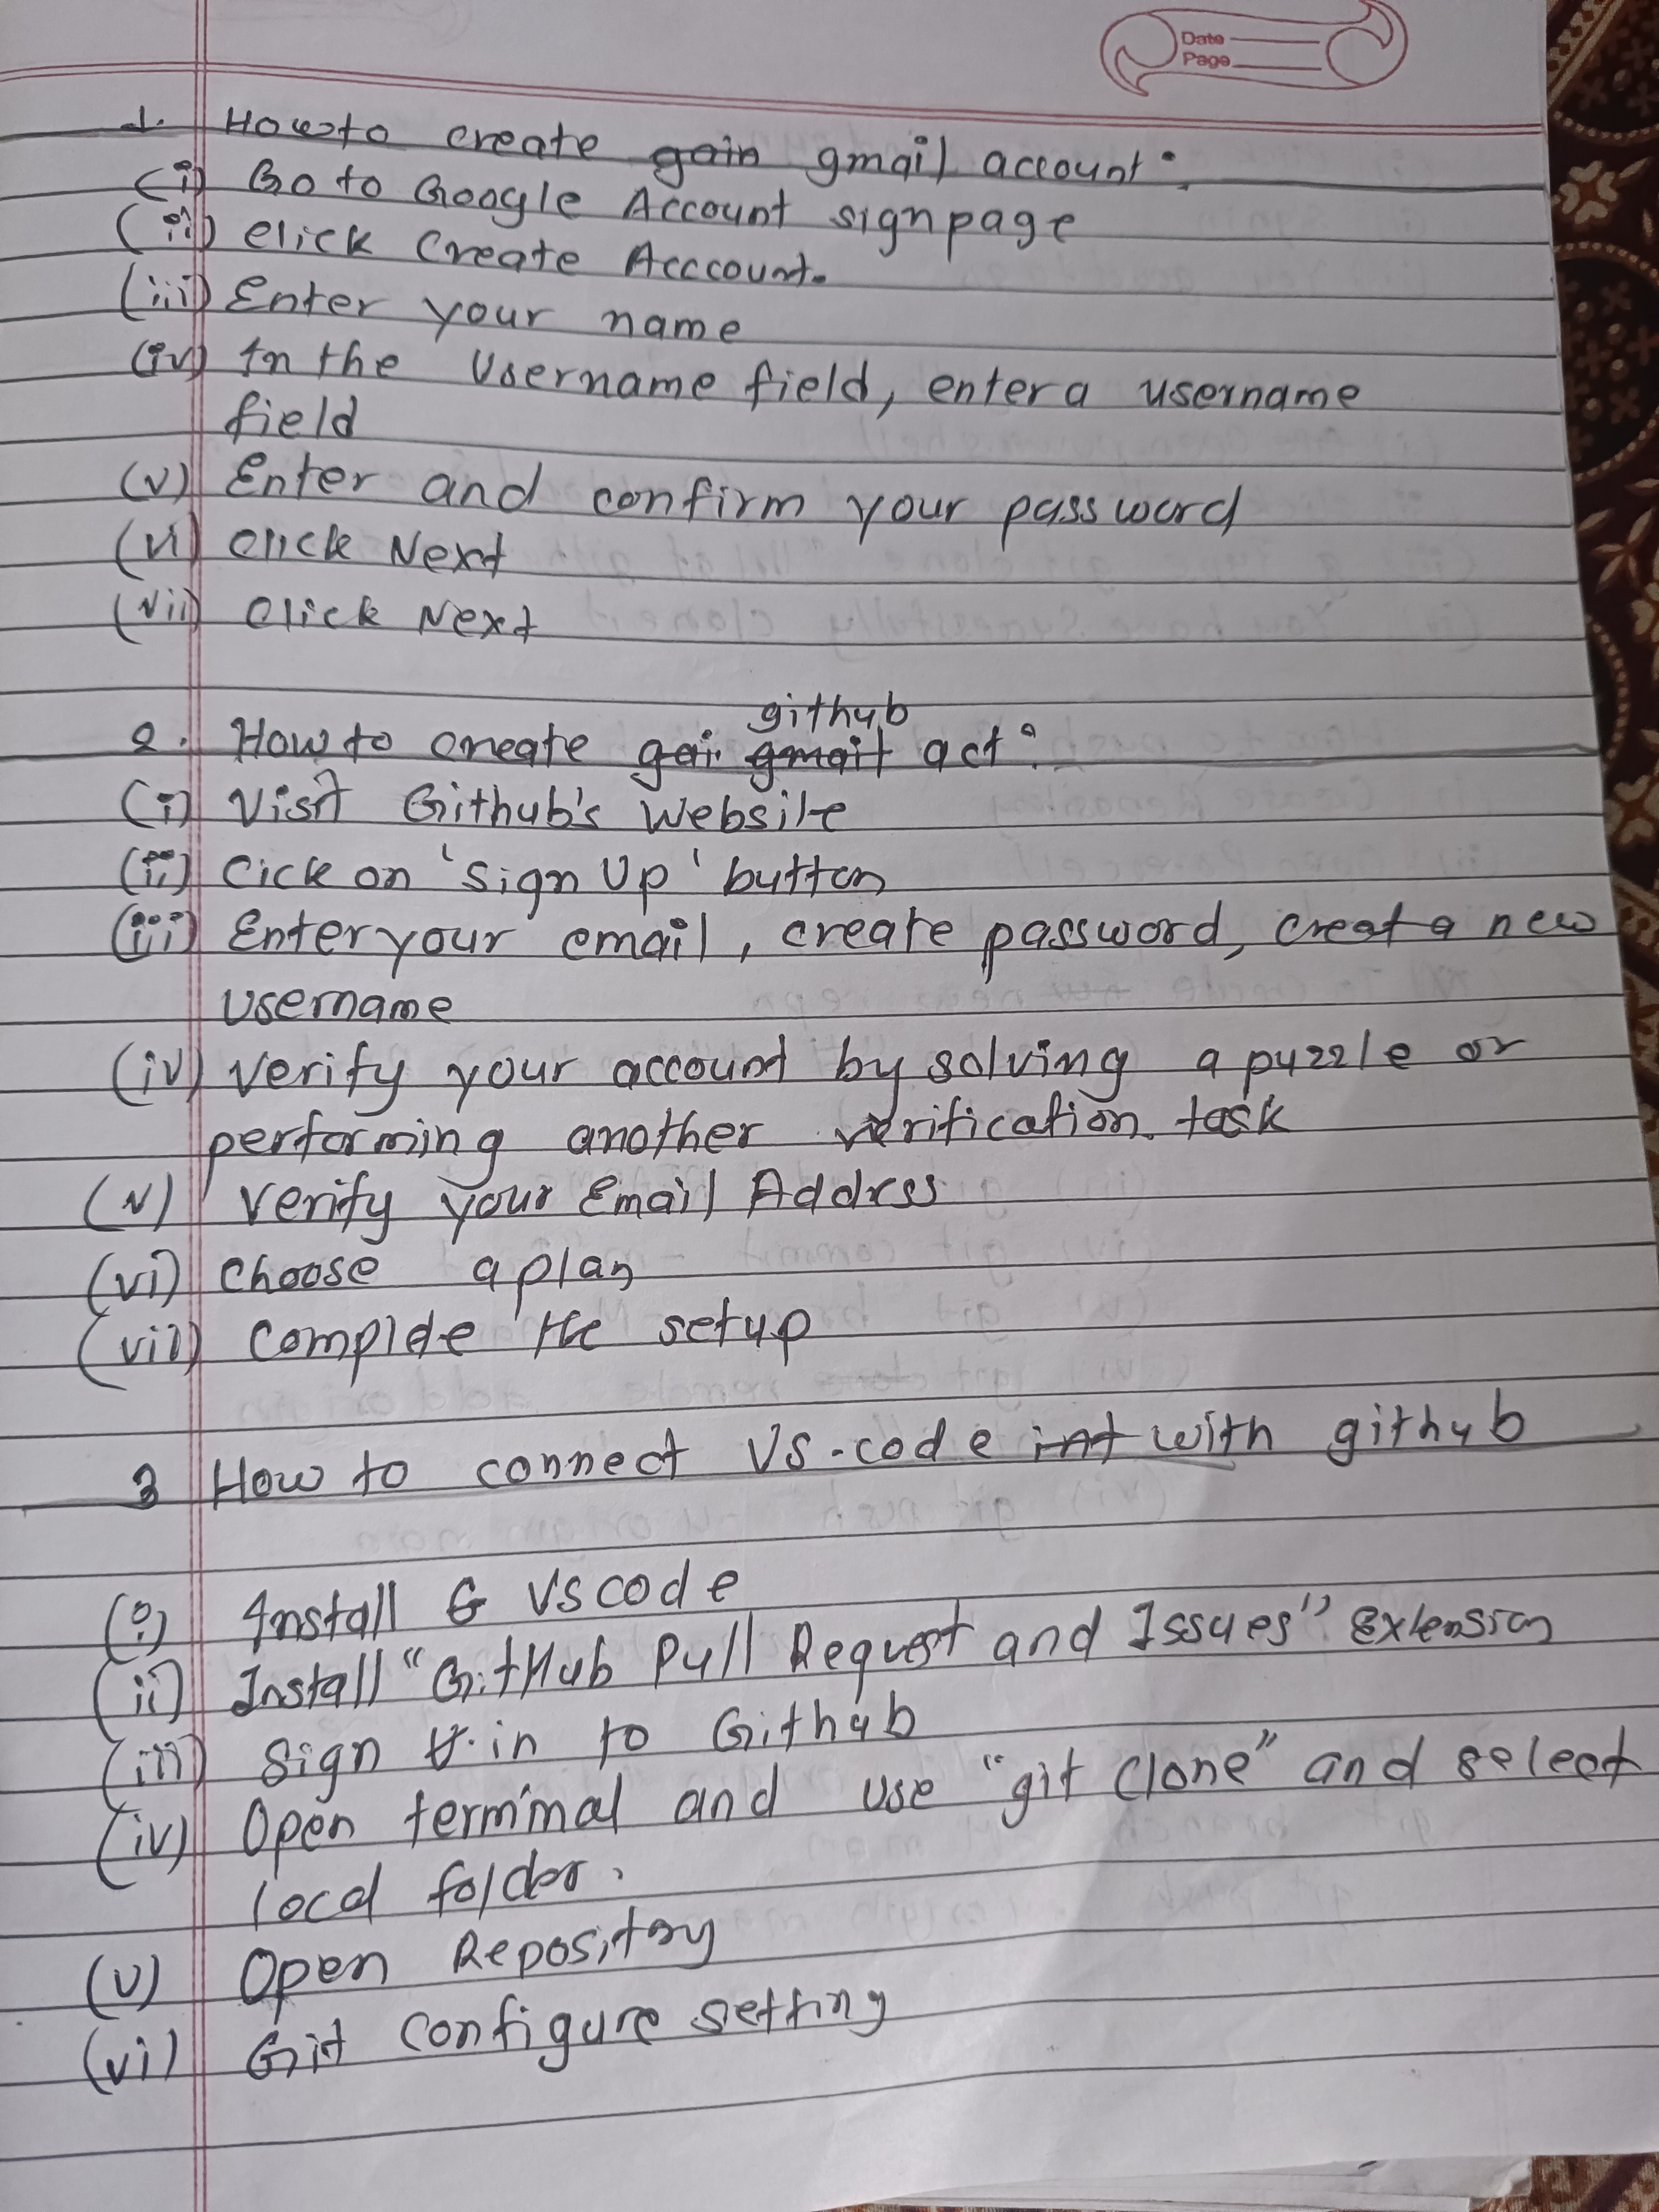 Date
Page
1. How to create gain gmail account:
(i) Go to Google Account sign page
(ii) click Create Acccount.
(iii) Enter your name
(iv) In the Username field, enter a username
field
(v) Enter and confirm your password
(vi) click Next
(vii) Click Next
github
2. How to create gai. gmail act:
(i) Visit Github's Website
(ii) Cick on 'Sign Up' button
(iii) Enter your email, create password, creat a new
username
(iv) Verify your account by solving a puzzle or
performing another verification task
(v) Verify your Email Address
(vi) choose a plan
(vii) Complete the setup
3 How to connect VS-code int with github
(i) Install G VS code
(ii) Install "GitHub Pull Request and Issues" Extension
(iii) Sign in to Github
(iv) Open terminal and use "git Clone" and select
local folder.
(v) Open Repository
(vi) Git Configure setting